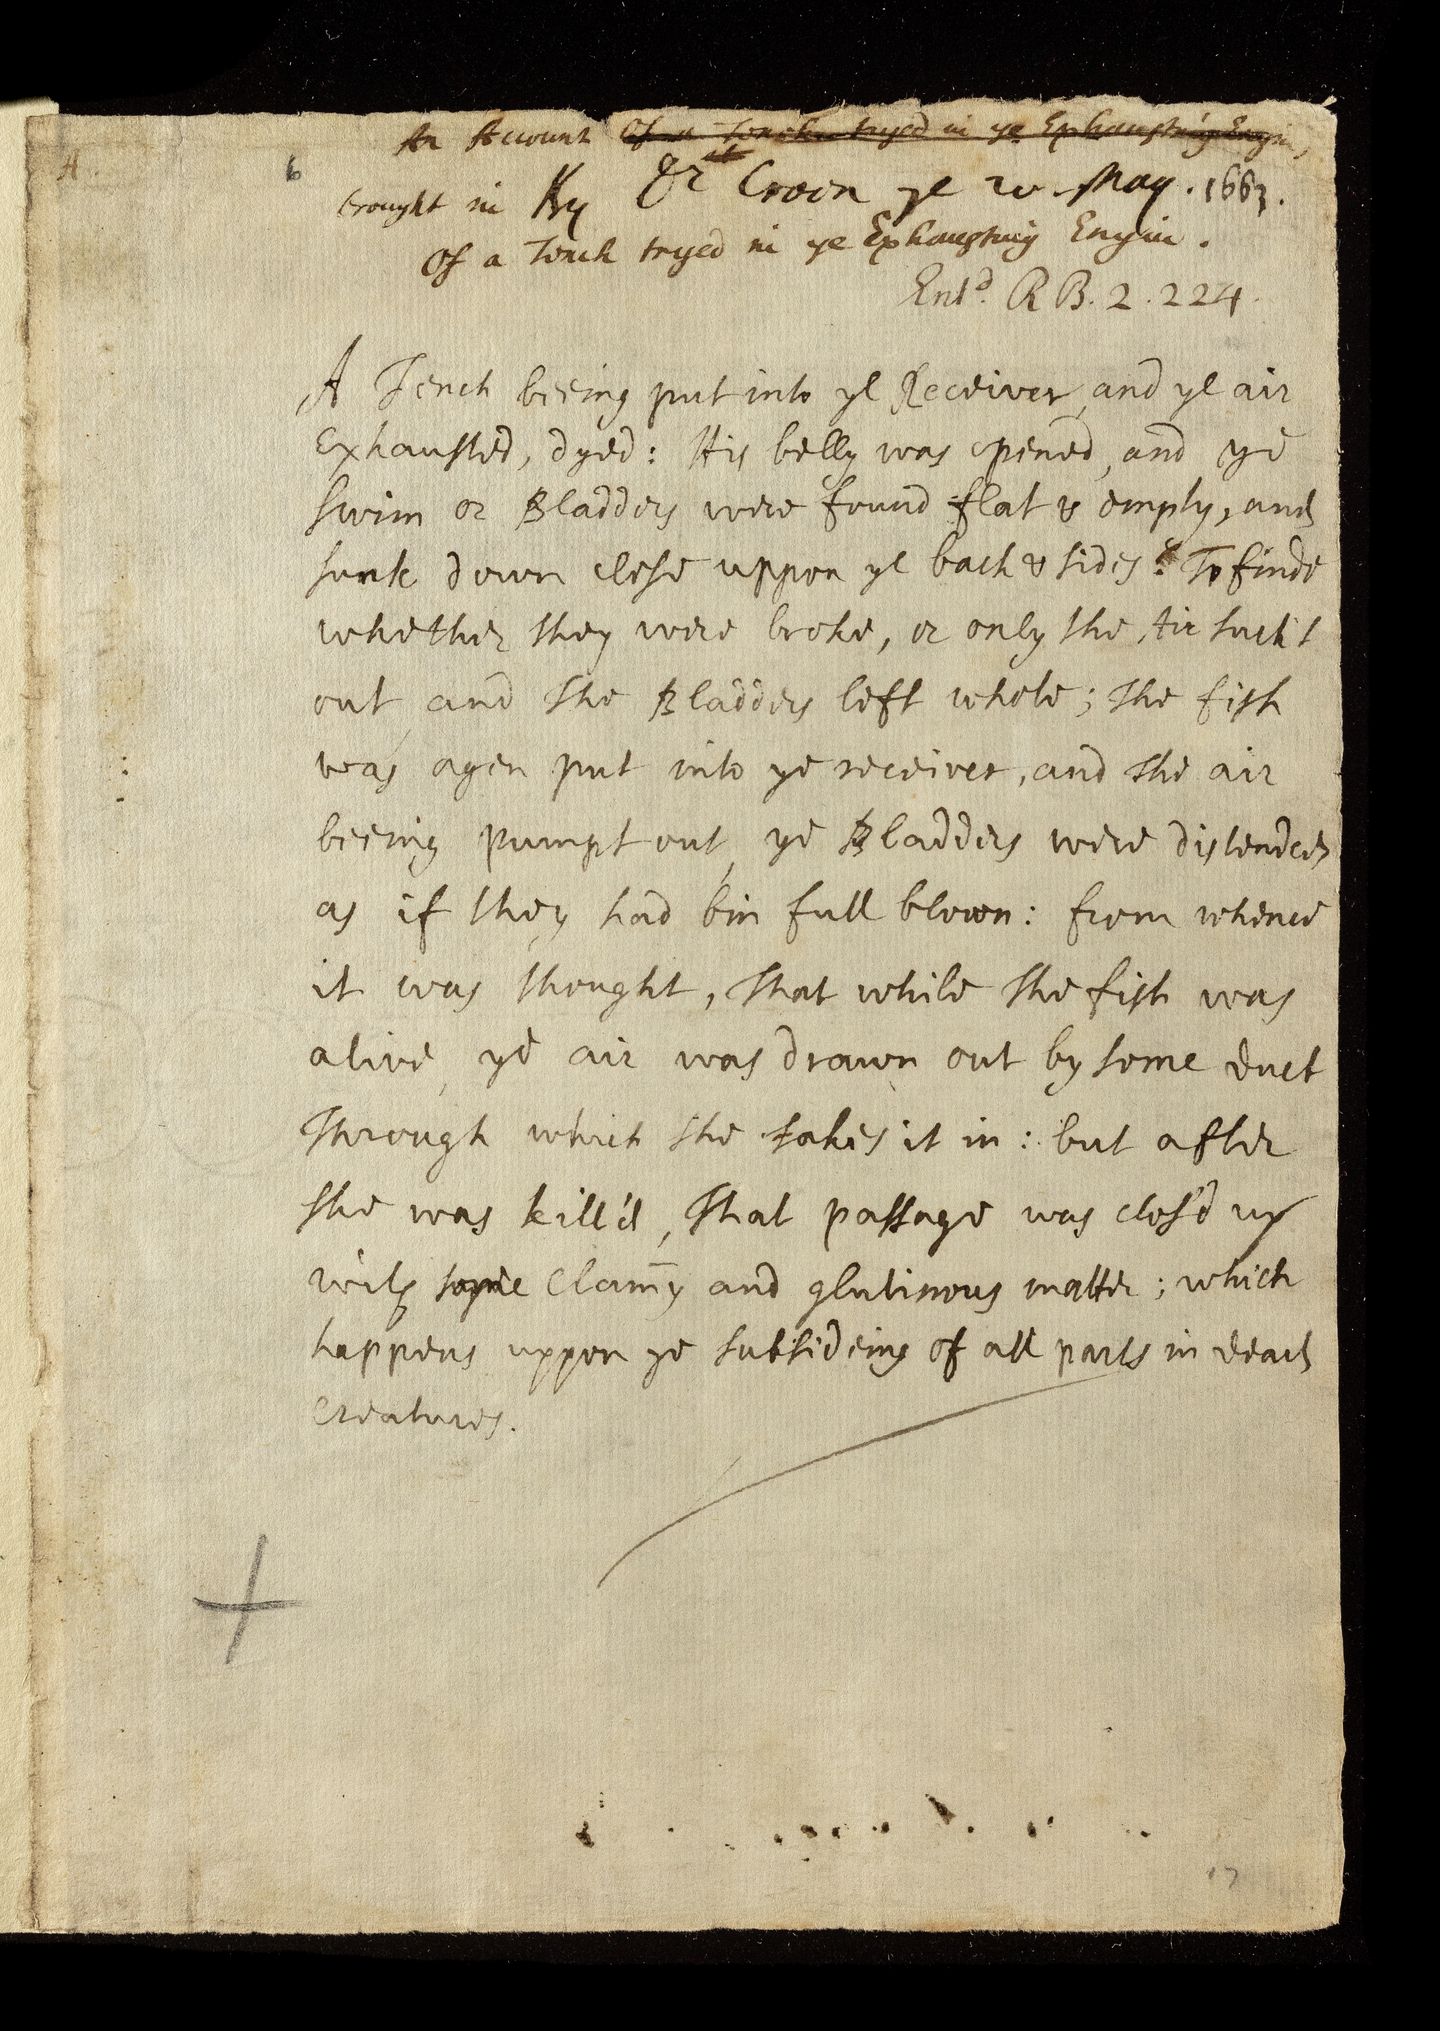 4.
6
An Account Of a Tench tryed in ye Exhausting Engin,
brought in By Dr Croon ye 20 May. 1663.
Of a Tench tryed in ye Exhausting Engin.
Entd. R B. 2. 224.
A Tench beeing put into ye Receiver, and ye air
Exhausted, dyed: His belly was opened, and ye
swim or Bladders were found flat & empty, and
sunk down close uppon ye back & sides: To finde
whether they were broke, or only the Air suck't
out and the Bladders left whole; the fish
was agen put into ye receiver, and the air
beeing pumpt out, ye Bladders were distended
as if they had bin full blown: from whence
it was thought, that while the fish was
alive, ye air was drawn out by some duct
through which she takes it in: but after
she was kill'd, that passage was clos'd up
with some Clam̄y and glutinous matter; which
happens uppon ye subsideing of all parts in dead
creatures.
17